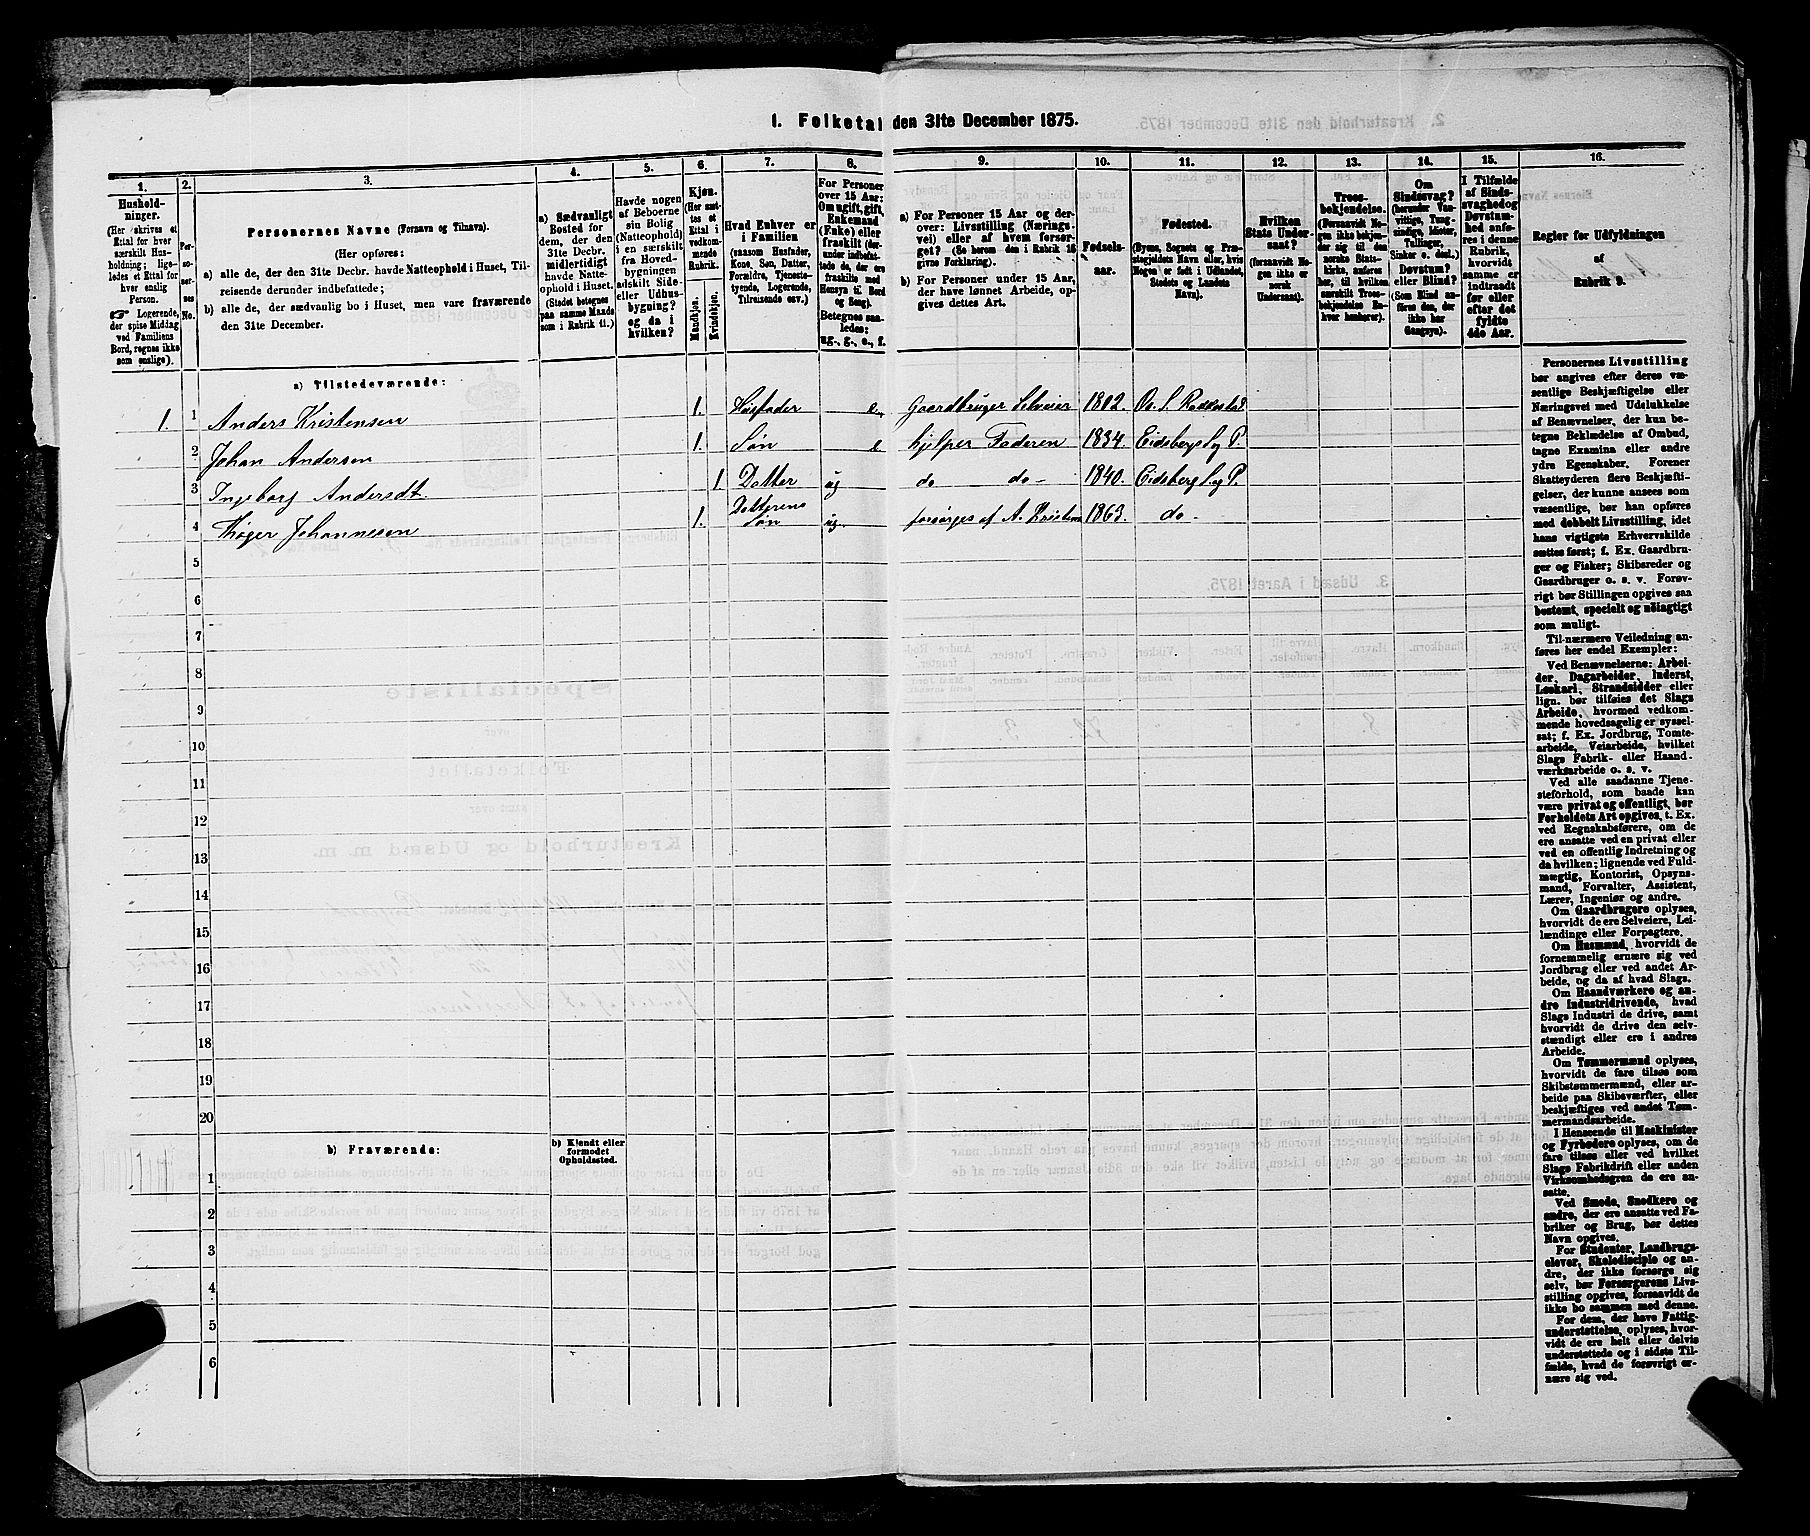 1. Folketal den 31te December 1875.
1. 2. 3. 4. 5. 6. 7. 8. 9. 10. 11. 12. 13. 14. 15. 16.
Hushold-
ninger.
(Her skrives et
Ettal for hver
særskilt Hus-
holdning; lige-
ledes et Ettal
for hver enslig
Person.
☞ Logerende,
der spise Middag
ved Familiens
Bord, regnes ikke
som enslige).
Per-
so-
ner-
nes
No.
Personernes Navne (Fornavn og Tilnavn).
(Her opføres:
a) alle de, der den 31te Decbr. havde Natteophold i Huset, Til-
reisende derunder indbefattede;
b) alle de, der sædvanlig bo i Huset, men vare fraværende
den 31te December.
a) Sædvanligt
Bosted for
dem, der den
31te Decbr.
midlertidigt
havde Natte-
ophold i Huset.
(Stedet betegnes
paa samme Maade
som i Rubrik 11.)
Havde nogen
af Beboerne
sin Bolig
(Natteophold)
i en særskilt
fra Hoved-
bygningen
adskilt Side-
eller Udhus-
bygning?
og da i
hvilken?
Kjøn.
(Her sæt-
tes et
Ettal i
vedkom-
mende
Rubrik.
Mandkjøn.
Kvindekjøn.
Hvad Enhver er
i Familien
(saasom Husfader,
Kone, Søn, Datter,
Forældre, Tjeneste-
tyende, Logerende,
Tilreisende osv.)
For Personer
over 15 Aar:
Om ugift, gift,
Enkemand
(Enke) eller
fraskilt (der-
under indbefat-
tede de, der ere
fraskilte med
Hensyn til Bord
og Seng).
Betegnes saa-
ledes:
ug., g., e., f.
a) For Personer 15 Aar og der-
over: Livsstilling (Nærings-
vei) eller af hvem forsør-
get? (Se herom den i Rubrik 16
givne Forklaring).
b) For Personer under 15 Aar,
der have lønnet Arbeide, op-
gives dettes Art.
Fødsels-
aar.
Fødested.
(Byens, Sognets og Præ-
stegjeldets Navn eller, hvis
Nogen er født i Udlandet,
Stedets og Landets
Navn).
Hvilken
Stats Under-
saat?
(forsaavidt No-
gen ikke er
norsk
Undersaat).
Troes-
bekjendelse.
(Forsaavidt No-
gen ikke bekjen-
der sig til den
norske Stats-
kirke, anføres
her, til hvilken
særskilt Troes-
bekjendelse En-
hver henhører).
Om
Sindssvag?
(herunder Van-
vittige, Tung-
sindige, Idioter,
Tullinger,
Sinker o. desl.)
Døvstum?
eller Blind?
(Som Blind an-
føres den, der
ikke har
Gangsyn).
I Tilfælde
af Sinds-
svaghed og
Døvstum-
hed anføres
i denne
Rubrik,
hvorvidt
samme er
indtraadt
før eller
efter det
fyldte
4de Aar.
Regler for Udfyldningen
af
Rubrik 9.
a) Tilstedeværende:
1. 1 Anders Kristensen 1. Husfader e. Gaardbruger Selveier 1802. Os. S. Rakkestad
2 Johan Andersen 1. Søn e hjelper Faderen 1834. Eidsberg S. og P.
3 Ingeborg Andersdt. 1. Datter ug do do - 1840. Eidsberg S. og P.
4 Johannesen 1. Datterens Søn ug. forsørges af A. Kristens 1863. do -
5
6
7
8
9
10
11
12
13
14
15
16
17
18
19
20
b) Fraværende:
b) Kjendt eller
formodet
Opholdssted.
1
2
3
4
5
6
Personernes Livsstilling
bør angives efter deres væ-
sentlige Beskjæftigelse eller
Næringsvei med Udelukkelse
af Benævnelser, der kun be-
tegne Beklædelse af Ombud,
tagne Examina eller andre
ydre Egenskaber. Forener
Skatteyderen flere Beskjæfti-
gelser, der kunne ansees som
væsentlige, bør han opføres
med dobbelt Livsstilling, idet
hans vigtigste Erhvervskilde
sættes først; f. Ex. Gaardbru-
ger og Fisker; Skibsreder og
Gaardbruger o. s. v. Forøv-
rigt bør Stillingen opgives saa
bestemt, specielt og nøiagtigt
som muligt.
Til nærmere Veiledning an-
føres her endel Exempler:
Ved Benævnelserne: Arbei-
der, Dagarbeider, Inderst,
Løskarl, Strandsidder eller
lign. bør tilføies det Slags
Arbeide, hvormed vedkom-
mende hovedsagelig er syssel-
sat; f. Ex. Jordbrug, Tomte-
arbeide, Veiarbeide, hvilket
Slags Fabrik- eller Haand-
værksarbeide o. s. v.
Ved alle saadanne Tjene-
steforhold, som baade kan
være privat og offentligt, bør
Forholdets Art opgives, t. Ex.
ved Regnskabsførere, om de
ere ansatte ved en privat eller
ved en offentlig Indretning og
da hvilken; lignende ved Fuld-
mægtig, Kontorist, Opsyns-
mand, Forvalter, Assistent,
Lærer, Ingeniør og andre.
Om Gaardbrugere oplyses,
hvorvidt de ere Selveiere, Lei-
lændinge eller Forpagtere.
Om Husmænd, hvorvidt de
fornemmelig ernære sig ved
Jordbrug eller ved andet Ar-
beide, og da af hvad Slags.
Om Haandværkere og an-
dre Industridrivende, hvad
Slags Industri de drive, samt
hvorvidt de drive den selv-
stændigt eller ere i andres
Arbeide.
Om Tømmermænd oplyses,
hvorvidt de fare tilsøs som
Skibstømmermænd, eller ar-
beide paa Skibsværfter, eller
beskjæftiges ved andet Tøm-
mermandsarbeide.
I Henseende til Maskinister
og Fyrbødere oplyses, om de
fare tilsøs eller ved hvilket
Slags Fabrikdrift eller anden
Virksomhedsgren de ere an-
satte.
Ved Smede, Snedkere og
andre, der ere ansatte ved Fa-
briker og Brug, bør dettes
Navn opgives.
For Studenter, Landbrugs-
elever, Skoledisciple og an-
dre, der ikke forsørge sig
selv, bør Forsørgerens Livs-
stilling opgives, forsaavidt de
ikke bo sammen med denne.
For dem, der have Fattig-
understøttelse, oplyses, hvor-
vidt de ere helt eller delvis
understøttede og i sidste Til-
fælde, hvad de forøvrigt er-
nære sig ved.